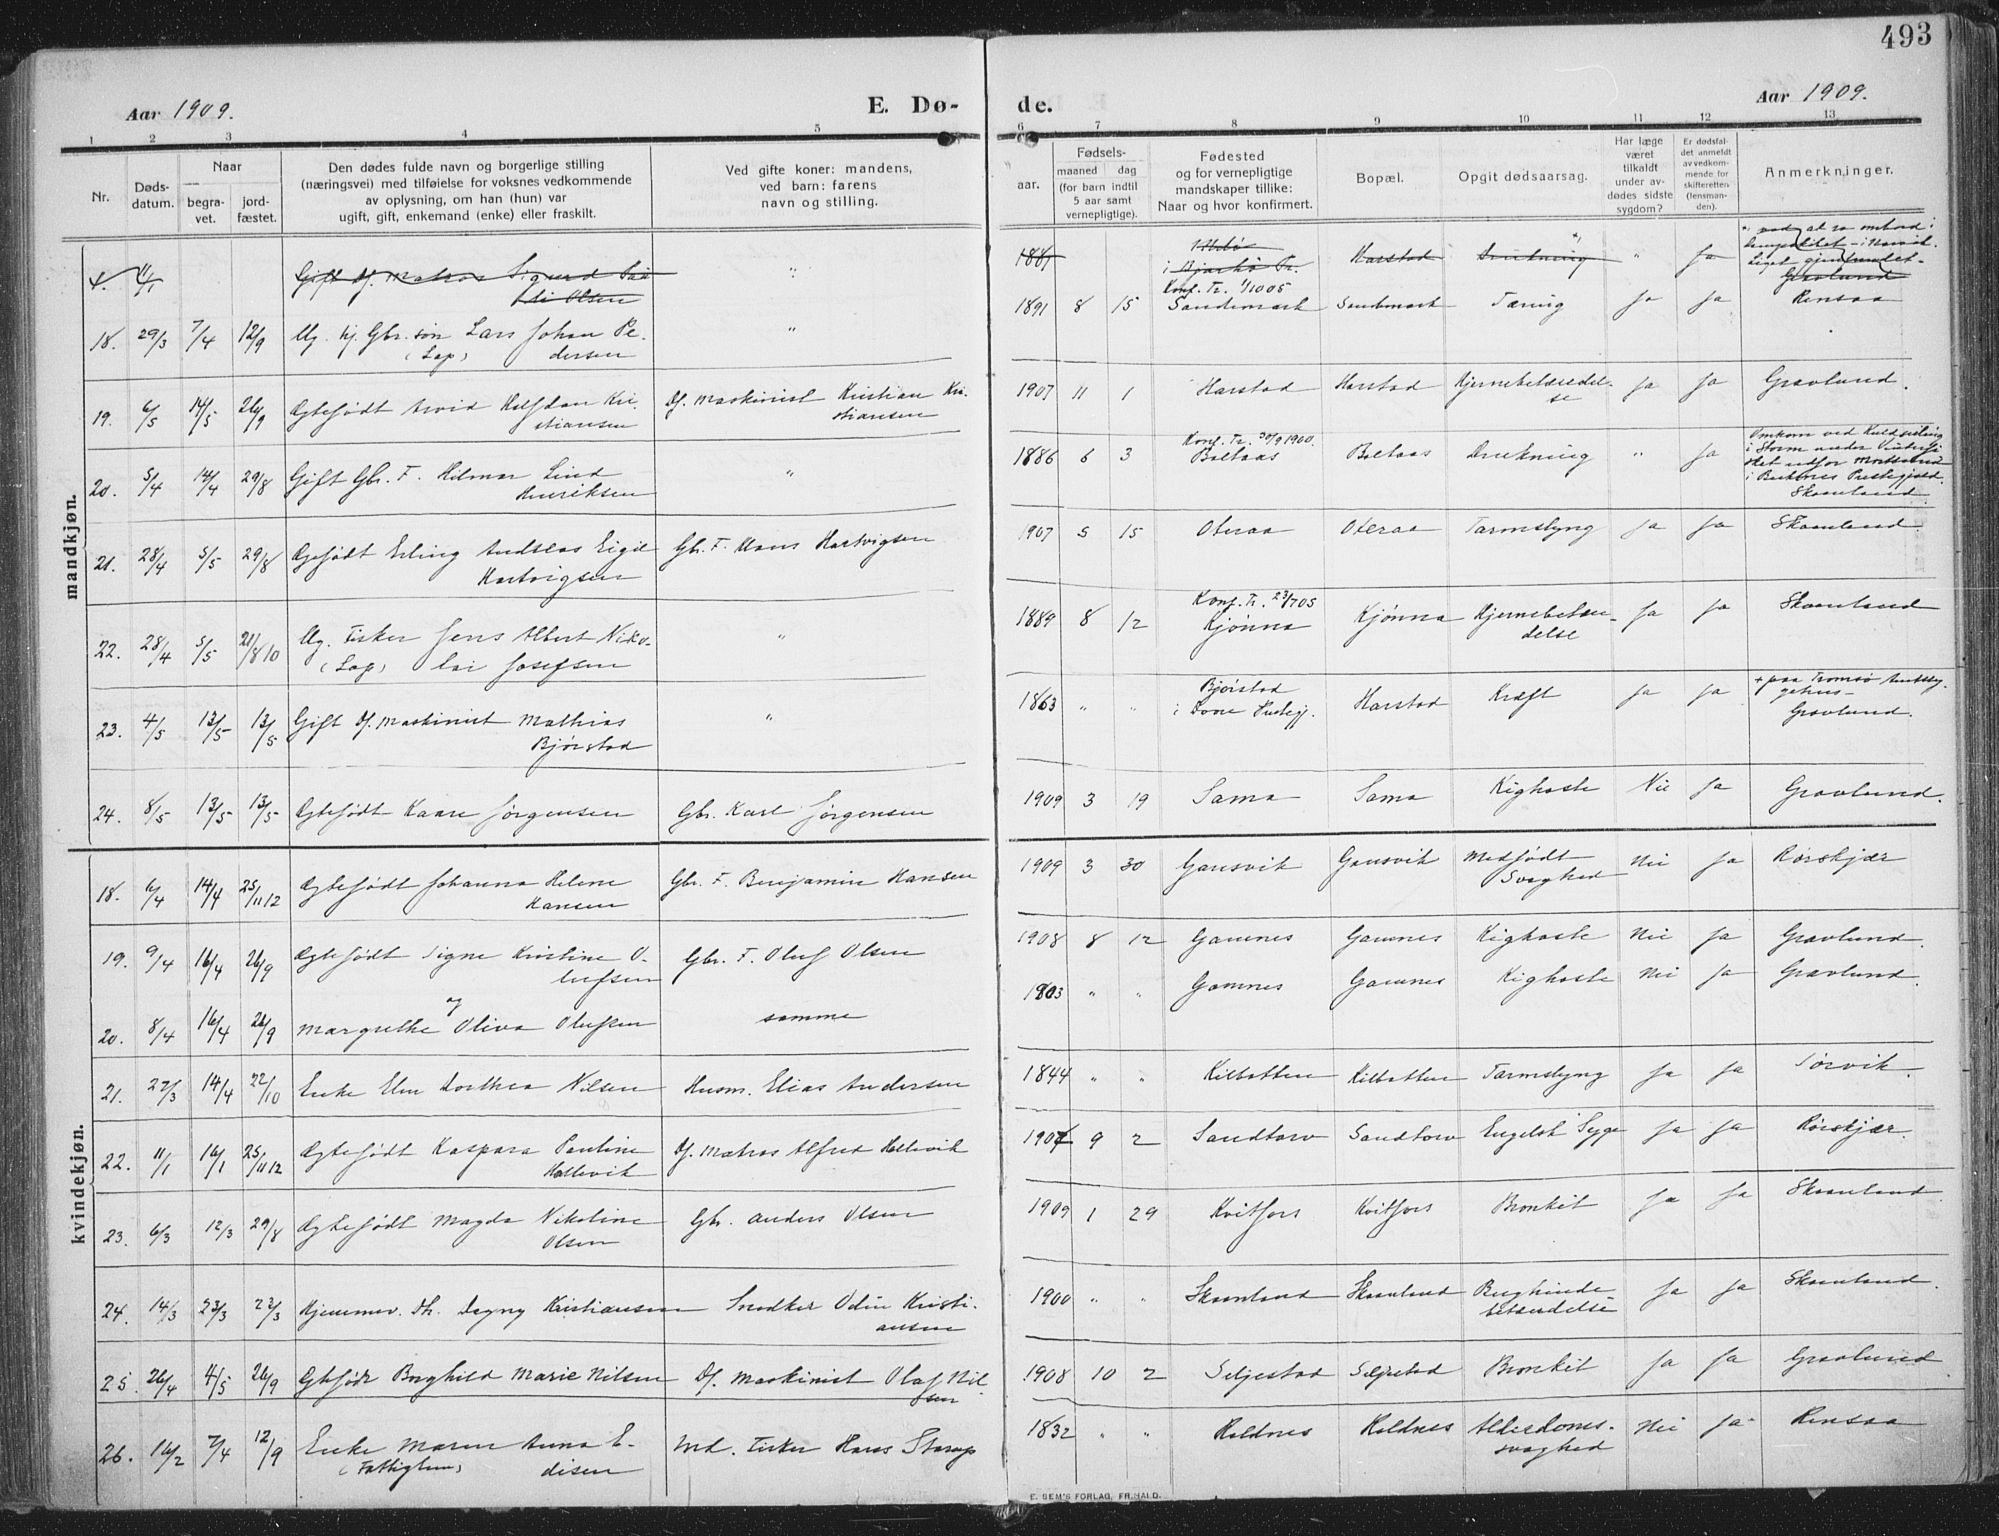 493
Aar 1909.
E. Dø-
de.
Aar 1909.
1 2 3 4 5 6 7 8 9 10 11 12 13
Nr.
Døds-
datum.
Naar
begra-
vet.
jord-
fæstet.
Den dødes fulde navn og borgerlige stilling
(næringsvei) med tilføielse for voksnes vedkommende
av oplysning, om han (hun) var
ugift, gift, enkemand (enke) eller fraskilt.
Ved gifte koner: mandens,
ved barn: farens
navn og stilling.
Fødsels-
aar.
maaned dag
(for barn indtil
5 aar samt
vernepligtige).
Fødested
og for vernepligtige
mandskaper tillike:
Naar og hvor konfirmert.
Bopæl.
Opgit dødsaarsag.
Har læge
været
tilkaldt
under av-
dødes sidste
sygdom?
Er dødsfal-
det anmeldt
av vedkom-
mende for
skifteretten
(lensman-
den).
Anmerkninger.
mandkjøn.
11/1 Gift Df. Matros Sigurd
Olsen " 1881
i Bjarkø Pr. Harstad Drukning " Ja
Gravlund
18. 29/3 7/4 12/9 Ug. hj. Gbr. søn Lars Johan Pe-
(Lap) dersen " 1891 8 15 Konf. Tr. 1/10 05
Sandemark Sandemark Tæring Ja Ja Rensaa
19. 6/5 14/5 26/9 Ægtefødt Arvid Halfdan Kri-
stiansen Df. Maskinist Kristian Kri-
stiansen 1907 11 1 Harstad Harstad Hjernebetændel-
se Ja Ja Gravlund.
20. 5/4 14/4 29/8 Gift Gbr. F. Hilmar Lind
Henriksen " 1886 6 3 Konf. Tr. 30/9 1900.
Boltaas Boltaas Drukning " Ja Omkom ved Kuldseiling
i Storm under Vinterfi-
sket udfor
i Præstegjeld.
Skaanland.
21. 28/4 5/5 29/8 Ægtefødt Erling Andreas Eigil
Hartvigsen Gbr. F. Hans Hartvigsen 1907 5 15 Oteraa Oteraa Tarmslyng Ja Ja Skaanland.
22. 28/4 5/5 21/8 10 Ug. Fisker Jens Albert Niko-
(Lap) lai Josefsen " 1889 8 12 Konf. Tr. 23/7 05
Kjønna Kjønna Hjernebetæn-
delse Ja Ja Skaanland
23. 4/5 13/5 13/5 Gift Df. Maskinist Mathias
Bjørstad " 1863 " " Bjørstad
i Præstegj. Harstad Kræft Ja Ja + paa Tromsø Amtssy-
gehus-
Gravlund.
24. 8/5 13/5 13/5 Ægtefødt Kaare Jørgensen Gbr. Karl Jørgensen 1909 3 19 Sama Sama Kighoste Nei Ja Gravlund.
kvindekjøn.
18. 6/4 14/4 25/11 12 Ægtefødt Johanna Helene
Hansen Gbr. F. Benjamin Hansen 1909 3 30 Gausvik Gausvik Medfødt
Svaghed Nei Ja Rørskjær
19. 9/4 16/4 26/9 Ægtefødt Signe Kristine O-
lufsen Gbr. F. Oluf Olsen 1908 8 12 Gamnes Gamnes Kighoste Nei Ja Gravlund.
20. 8/4 16/4 26/9 Margrethe Oliva Olufsen samme 1903 " " Gamnes Gamnes Kighoste Nei Ja Gravlund.
21. 27/3 14/4 22/10 Enke Elen Dorthea Nilsen Husm. Elias Andersen 1844 " " Kilbotten Kilbotten Tarmslyng Ja Ja Sørvik.
22. 11/1 16/1 25/11 12 Ægtefødt Kaspara Pauline
Hallevik Df. Matros Alfred Hallevik 1907 9 2 Sandtorv Sandtorv Engelsk Syge Ja Ja Rørskjær.
23. 6/3 12/3 29/8 Ægtefødt Magda Nikoline
Olsen Gbr. Anders Olsen 1909 1 29 Kvitfors Kvitfors Bronkit Ja Ja Skaanland.
24. 14/3 23/3 23/3 Hjemmev. Dt. Dagny Kristiansen Snedker Odin Kristi-
ansen 1900 " " Skaanland Skaanland Bughinde-
betændelse Ja Ja Skaanland.
25. 26/4 4/5 26/9 Ægtefødt Borghild Marie Nilsen Df. Maskinist Olaf Nil-
sen 1908 10 2 Seljestad Seljestad Bronkit Ja Ja Gravlund
26. 16/2 7/4 12/9 Enke Maren Anna E-
(Fattiglem) disen Md. Fisker Hans Storup 1832 " " Holdnes Holdnes Alderdoms-
svaghed Nei Ja Rensaa
E. SEM'S FORLAG, FR.HALD.